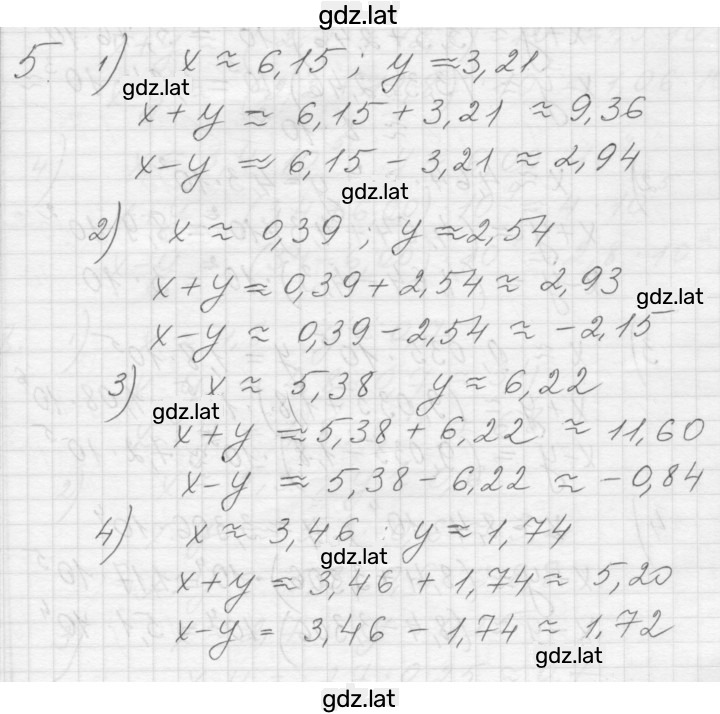 gdz.lat
5 1) x ≈ 6,15 ; y ≈ 3,21
gdz.lat
x + y ≈ 6,15 + 3,21 ≈ 9,36
x – y ≈ 6,15 – 3,21 ≈ 2,94
gdz.lat
2) x ≈ 0,39 ; y ≈ 2,54
x + y ≈ 0,39 + 2,54 ≈ 2,93
gdz.lat
x – y ≈ 0,39 – 2,54 ≈ – 2,15
3) x ≈ 5,38 y ≈ 6,22
gdz.lat
x + y ≈ 5,38 + 6,22 ≈ 11,60
x – y ≈ 5,38 – 6,22 ≈ – 0,84
4) x ≈ 3,46 ; y ≈ 1,74
gdz.lat
x + y ≈ 3,46 + 1,74 ≈ 5,20
x – y = 3,46 – 1,74 ≈ 1,72
gdz.lat
gdz.lat